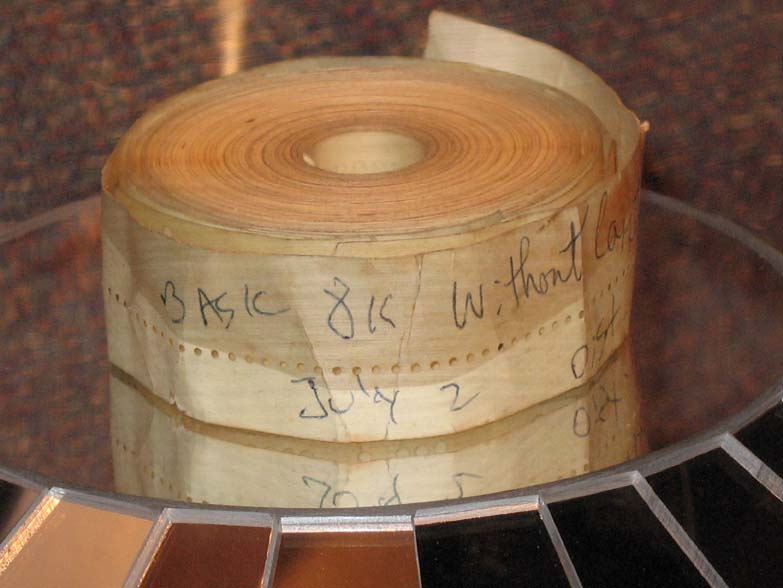 BASIC 8K Without
July 2 Dist